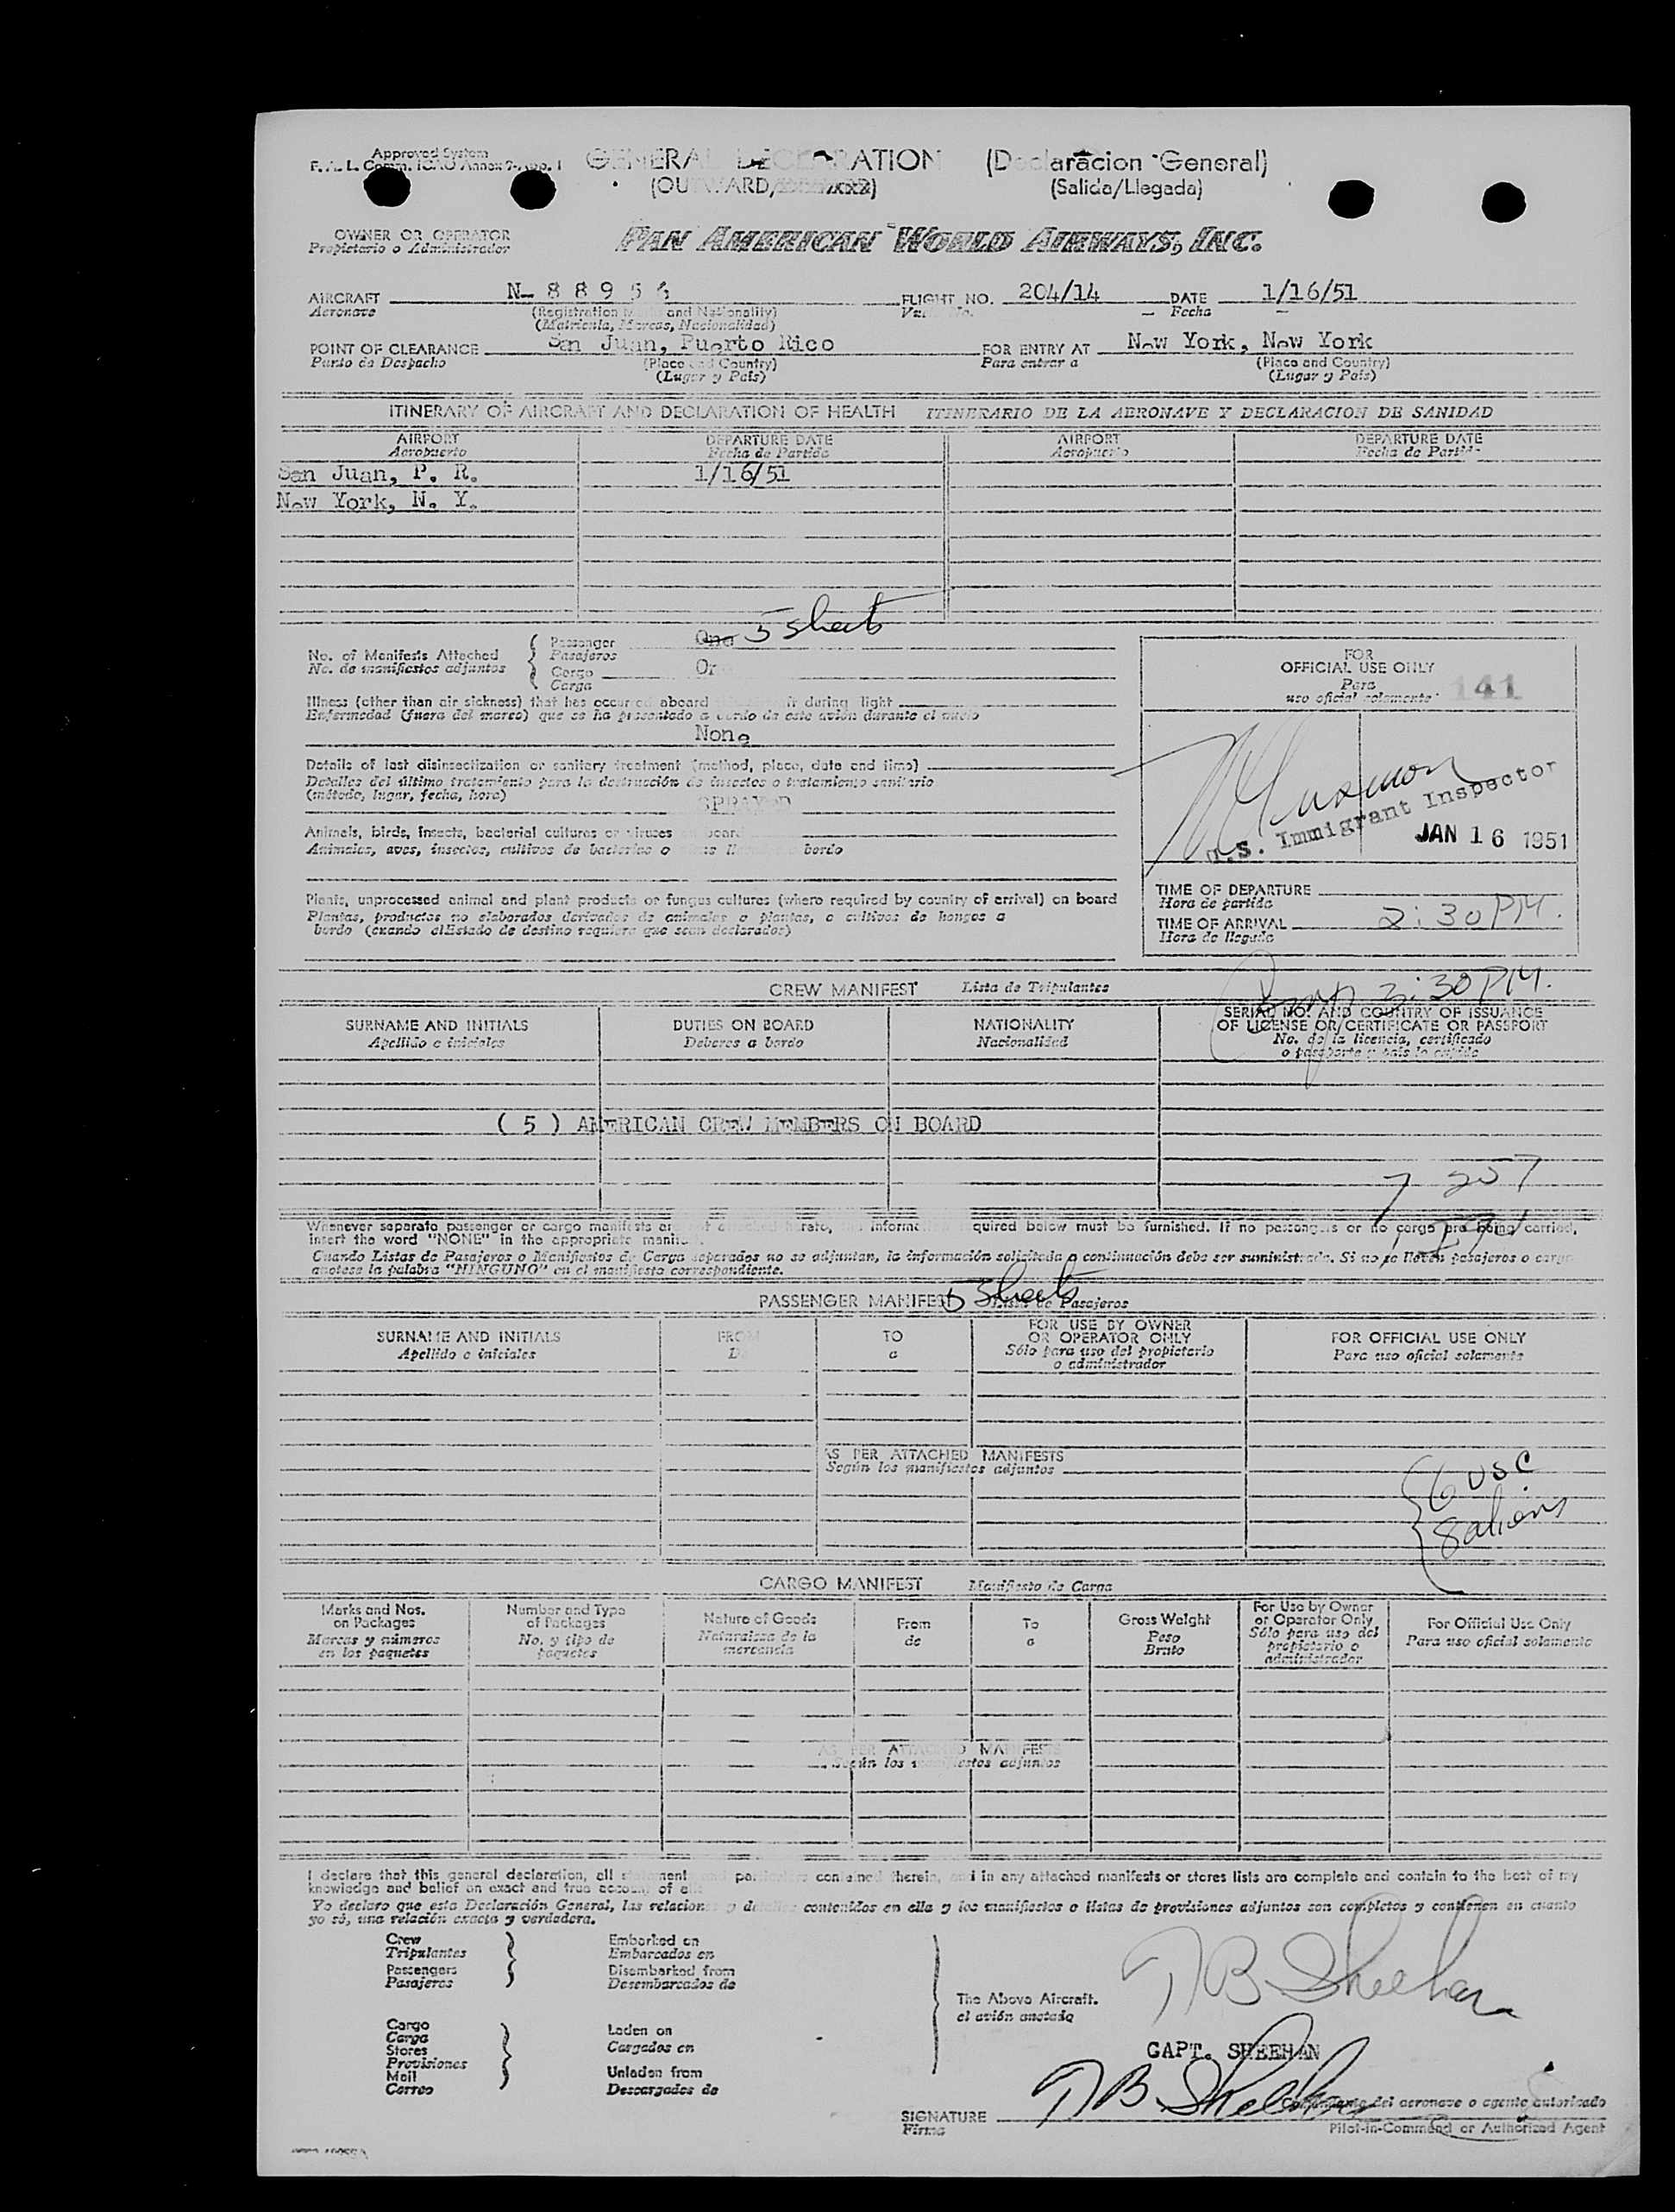 Approved System
GENERAL DECLARATION (Declaracion General)
(OUTWARD, (Salida/Llegada)
OWNER OR OPERATOR
Propietario o Administrador
PAN AMERICAN WORLD AIRWAYS, INC.
AIRCRAFT N-8895 FLIGHT NO. 204/14 DATE 1/16/51
Aeronave (Registration and Nationality) Fecha
(Matricula, Marcas, Nacionalidad)
POINT OF CLEARANCE San Juan, Puerto Rico FOR ENTRY AT New York, New York
Punto de Despacho (Place and Country) Para entrar a (Place and Country)
(Lugar y País) (Lugar y País)
ITINERARY OF AIRCRAFT AND DECLARATION OF HEALTH ITINERARIO DE LA AERONAVE Y DECLARACION DE SANIDAD
AIRPORT DEPARTURE DATE AIRPORT DEPARTURE DATE
Aeropuerto Fecha de Partida Aeropuerto Fecha de Partida
San Juan, P. R. 1/16/51
New York, N. Y.
No. of Manifests Attached
No. de manifiestos adjuntos
Passenger One 5 sheets
Pasajeros
Cargo
Carga
Illness (other than air sickness) that has occurred aboard during flight
Enfermedad (fuera del mareo) que se ha presentado a bordo de este avión durante el vuelo
None
Details of last disinsectization or sanitary treatment (method, place, date and time)
Detalles del último tratamiento para la destrucción de insectos o tratamiento sanitario
(método, lugar, fecha, hora)
SPRAYED
Animals, birds, insects, bacterial cultures or viruses on board
Animales, aves, insectos, cultivos de bacterias o bordo
Plants, unprocessed animal and plant products or fungus cultures (where required by country of arrival) on board
Plantas, productos no elaborados derivados de animales o plantas, o cultivos de hongos a
bordo (cuando el Estado de destino requiera que sean declarados)
FOR
OFFICIAL USE ONLY
Para
uso oficial solamente
141
U.S. Immigrant Inspector
JAN 16 1951
TIME OF DEPARTURE
Hora de partida
TIME OF ARRIVAL 2:30 PM.
Hora de llegada
3:30 PM.
CREW MANIFEST Lista de Tripulantes
SURNAME AND INITIALS DUTIES ON BOARD NATIONALITY SERIAL NO. AND COUNTRY OF ISSUANCE
OF LICENSE OR CERTIFICATE OR PASSPORT
Apellido e iniciales Deberes a bordo Nacionalidad No. de la licencia, certificado
o pasaporte y país lo expide
( 5 ) AMERICAN CREW MEMBERS ON BOARD
7 207
Whenever separate passenger or cargo manifests are hereto, information required below must be furnished. If no passengers or no cargo are being carried,
insert the word "NONE" in the appropriate manifest.
Cuando Listas de Pasajeros o Manifiestos de Carga separados no se adjuntan, la información solicitada a continuación debe ser suministrada. Si no se llevan pasajeros o carga
anotese la palabra "NINGUNO" en el manifiesto correspondiente.
PASSENGER MANIFEST 5 sheets Lista de Pasajeros
SURNAME AND INITIALS FROM TO FOR USE BY OWNER
OR OPERATOR ONLY FOR OFFICIAL USE ONLY
Apellido e iniciales De a Sólo para uso del propietario
o administrador Para uso oficial solamente
AS PER ATTACHED MANIFESTS
Según los manifiestos adjuntos
6 USC
8 aliens
CARGO MANIFEST Manifiesto de Carga
Marks and Nos.
on Packages
Marcas y números
en los paquetes
Number and Type
of Packages
No. y tipo de
paquetes
Nature of Goods
Naturaleza de la
mercancía
From
de
To
a
Gross Weight
Peso
Bruto
For Use by Owner
or Operator Only
Sólo para uso del
propietario o
administrador
For Official Use Only
Para uso oficial solamente
AS PER ATTACHED MANIFESTS
Según los manifiestos adjuntos
I declare that this general declaration, all statements and particulars contained therein, and in any attached manifests or stores lists are complete and contain to the best of my
knowledge and belief an exact and true account of all
Yo declaro que esta Declaración General, las relaciones y detalles contenidos en ella y los manifiestos o listas de provisiones adjuntos son completos y contienen en cuanto
yo sé, una relación exacta y verdadera.
Crew
Tripulantes
Passengers
Pasajeros
Embarked on
Embarcados en
Disembarked from
Desembarcados de
Cargo
Carga
Stores
Provisiones
Mail
Correo
Laden on
Cargados en
Unladen from
Descargados de
The Above Aircraft.
el avión anotado
B Sheehan
CAPT. SHEEHAN
SIGNATURE B Sheehan
Firma
Comandante del aeronave o agente autorizado
Pilot-in-Command or Authorized Agent